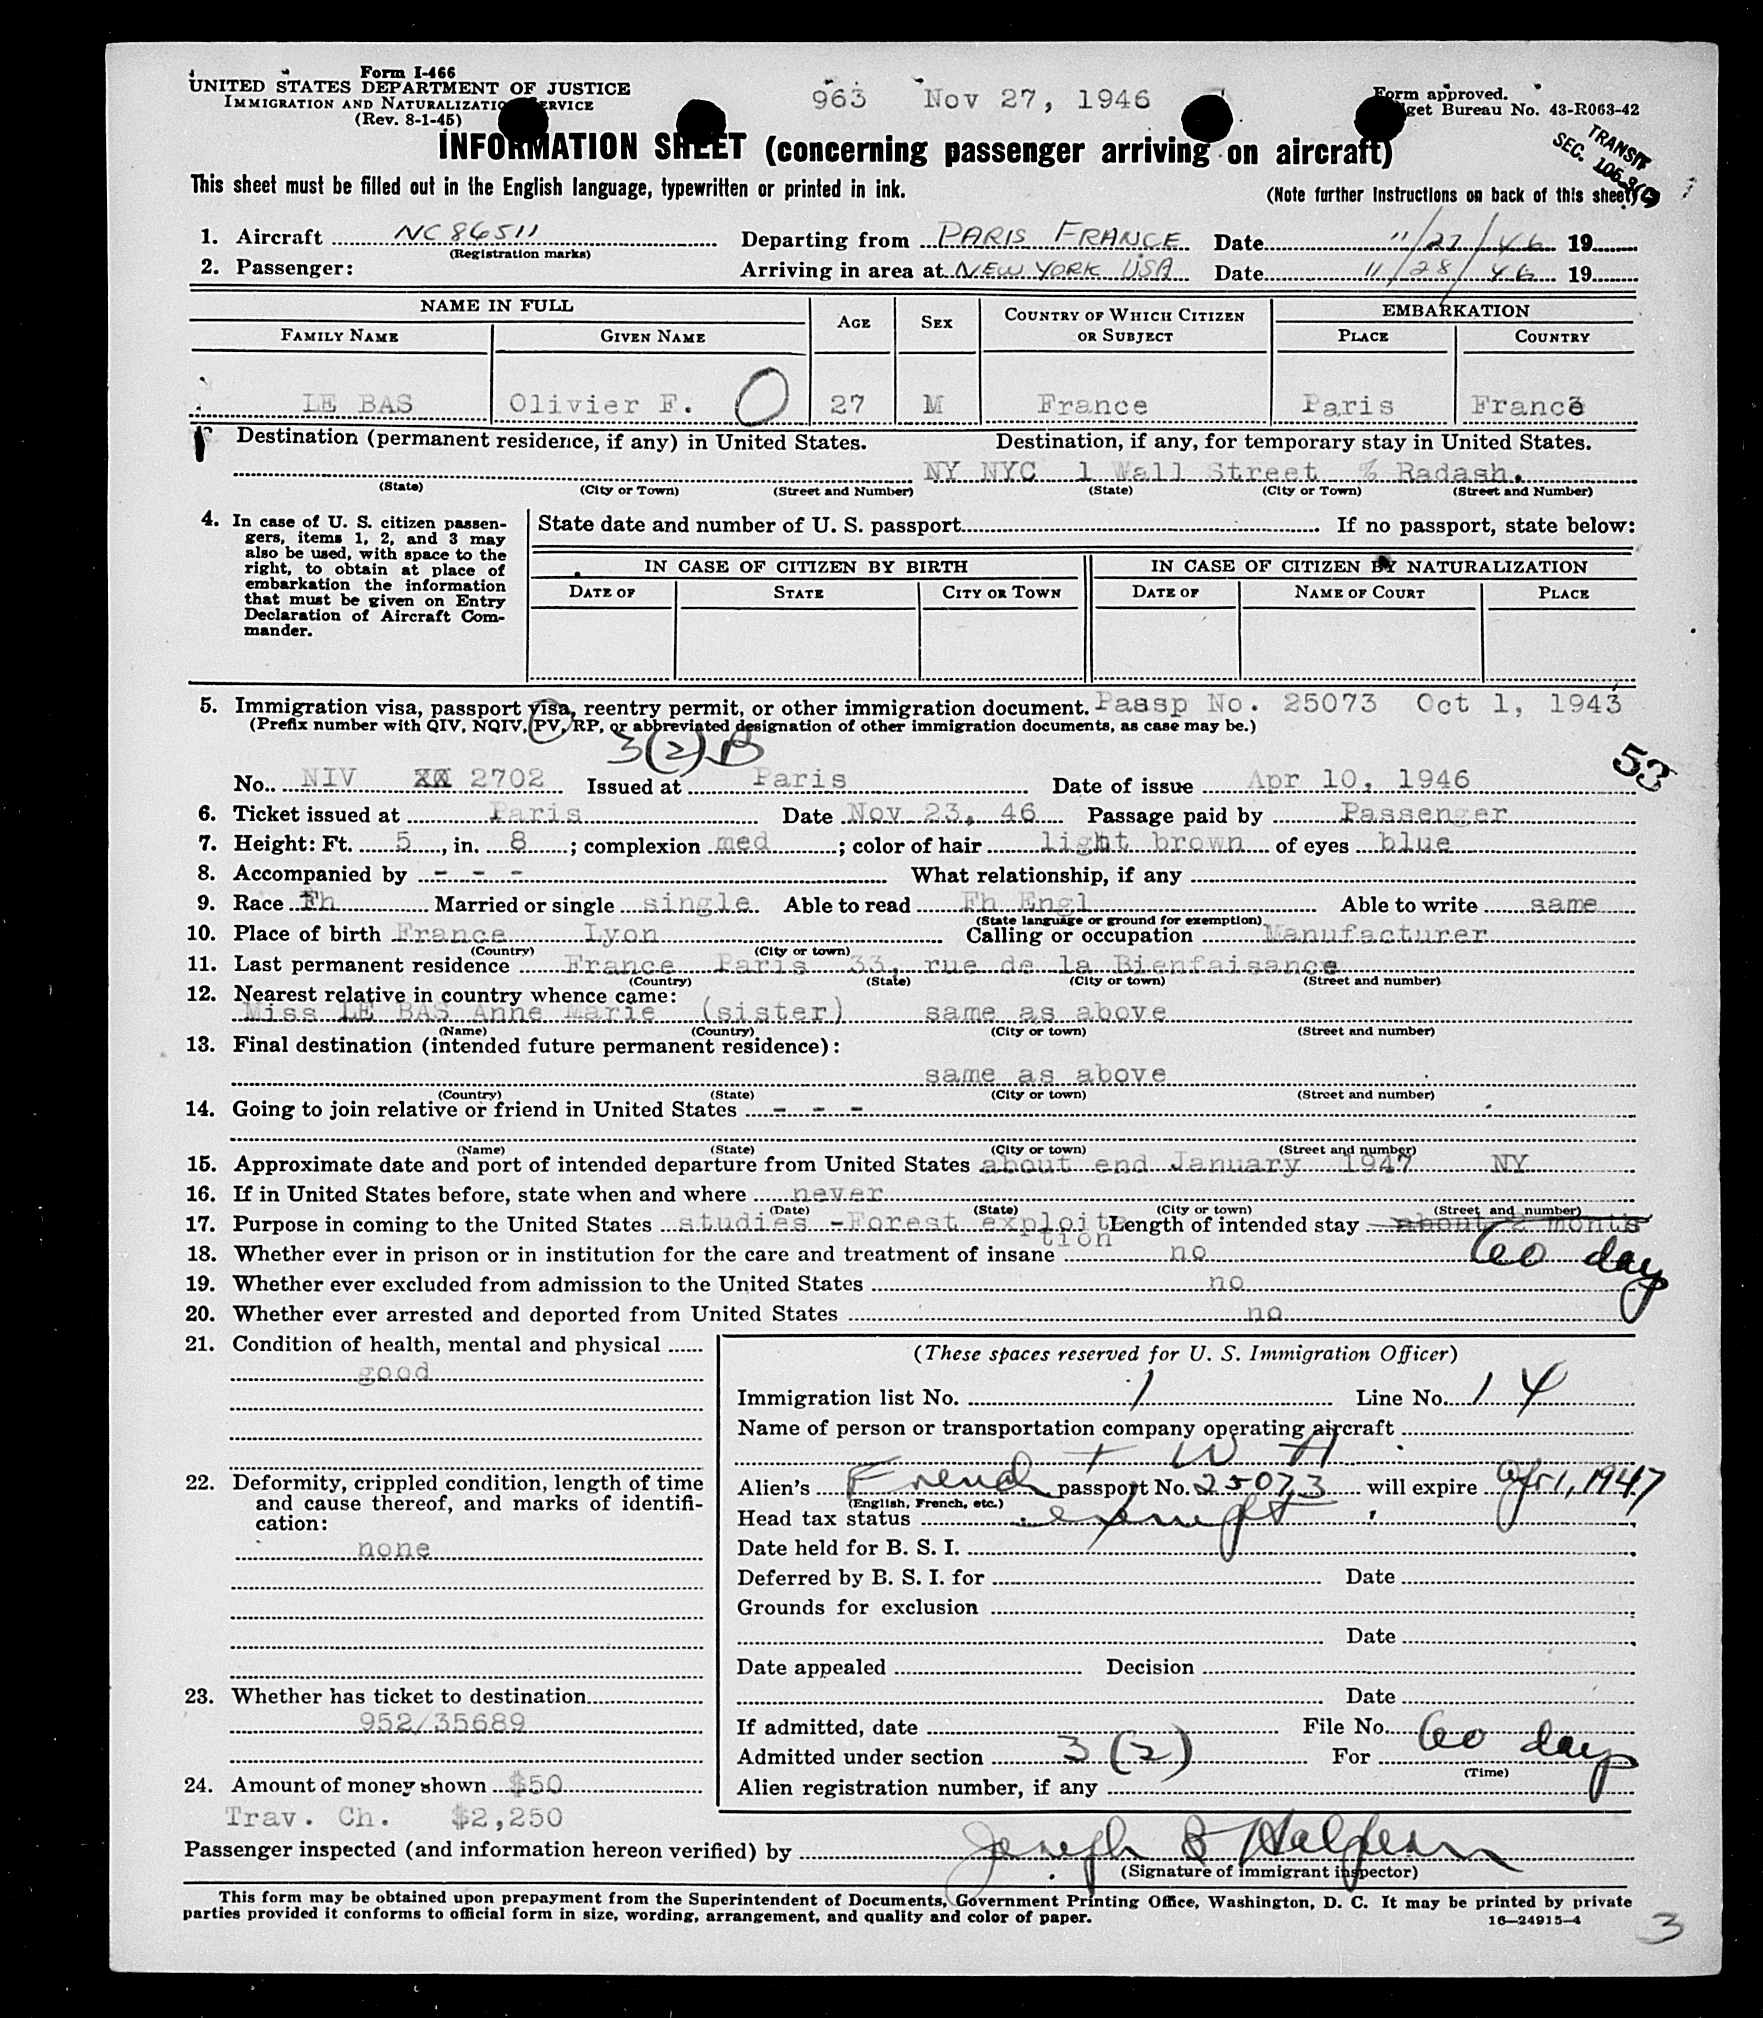 Form I-466
UNITED STATES DEPARTMENT OF JUSTICE
IMMIGRATION AND NATURALIZATION SERVICE
(Rev. 8-1-45)
963 Nov 27, 1946
Form approved.
Budget Bureau No. 43-R063-42
TRANSIT
SEC.
INFORMATION SHEET (concerning passenger arriving on aircraft)
This sheet must be filled out in the English language, typewritten or printed in ink.
(Note further instructions on back of this sheet)
1. Aircraft NC 86511 Departing from PARIS FRANCE Date 11/27/46 19
(Registration marks)
2. Passenger: Arriving in area at NEW YORK USA Date 11/28/46 19
NAME IN FULL AGE SEX COUNTRY OF WHICH CITIZEN OR SUBJECT EMBARKATION
FAMILY NAME GIVEN NAME PLACE COUNTRY
LE BAS Olivier F. O 27 M France Paris France
Destination (permanent residence, if any) in United States. Destination, if any, for temporary stay in United States.
NY NYC 1 Wall Street % Radash.
(State) (City or Town) (Street and Number) (State) (City or Town) (Street and Number)
4. In case of U. S. citizen passen-
gers, items 1, 2, and 3 may
also be used, with space to the
right, to obtain at place of
embarkation the information
that must be given on Entry
Declaration of Aircraft Com-
mander.
State date and number of U. S. passport If no passport, state below:
IN CASE OF CITIZEN BY BIRTH IN CASE OF CITIZEN BY NATURALIZATION
DATE OF STATE CITY OR TOWN DATE OF NAME OF COURT PLACE
5. Immigration visa, passport visa, reentry permit, or other immigration document. Passp No. 25073 Oct 1, 1943
(Prefix number with QIV, NQIV, PV, RP, or abbreviated designation of other immigration documents, as case may be.)
3(2)B
53
No. NIV XX 2702 Issued at Paris Date of issue Apr 10, 1946
6. Ticket issued at Paris Date Nov 23, 46 Passage paid by Passenger
7. Height: Ft. 5, in. 8; complexion med; color of hair light brown of eyes blue
8. Accompanied by - - - What relationship, if any
9. Race Fh Married or single single Able to read Fh Engl Able to write same
(State language or ground for exemption)
10. Place of birth France Lyon Calling or occupation Manufacturer
(Country) (City or town)
11. Last permanent residence France Paris 33, rue de la Bienfaisance
(Country) (State) (City or town) (Street and number)
12. Nearest relative in country whence came:
Miss LE BAS Anne Marie (sister) same as above
(Name) (Country) (City or town) (Street and number)
13. Final destination (intended future permanent residence):
same as above
(Country) (State) (City or town) (Street and number)
14. Going to join relative or friend in United States - - -
(Name) (State) (City or town) (Street and number)
15. Approximate date and port of intended departure from United States about end January 1947 NY
16. If in United States before, state when and where never
(Date) (State) (City or town) (Street and number)
17. Purpose in coming to the United States studies -Forest exploita Length of intended stay about 2 months
tion
60 days
18. Whether ever in prison or in institution for the care and treatment of insane no
19. Whether ever excluded from admission to the United States no
20. Whether ever arrested and deported from United States no
21. Condition of health, mental and physical
good
22. Deformity, crippled condition, length of time
and cause thereof, and marks of identifi-
cation:
none
23. Whether has ticket to destination
952/35689
24. Amount of money shown $50
Trav. Ch. $2,250
(These spaces reserved for U. S. Immigration Officer)
Immigration list No. 1 Line No. 14
Name of person or transportation company operating aircraft
T W A
Alien's French passport No. 25073 will expire Apr 1, 1947
(English, French, etc.)
Head tax status exempt
Date held for B. S. I.
Deferred by B. S. I. for Date
Grounds for exclusion
Date
Date appealed Decision
Date
If admitted, date File No.
Admitted under section 3(2) For 60 days
(Time)
Alien registration number, if any
Passenger inspected (and information hereon verified) by Joseph S Halpern
(Signature of immigrant inspector)
This form may be obtained upon prepayment from the Superintendent of Documents, Government Printing Office, Washington, D. C. It may be printed by private
parties provided it conforms to official form in size, wording, arrangement, and quality and color of paper.
16—24915-4
3